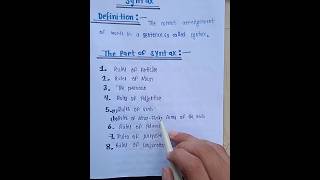 Syntax
Definition:- The correct arrangement
of words in a sentence is called syntax.
The Part of Syntax:-
1. Rules of Article
2. Rules of Noun
3. The pronoun
4. Rules of Adjective
5. Rules of verb
of the verb
6. Rules of
7. Rules of
8. Rules of